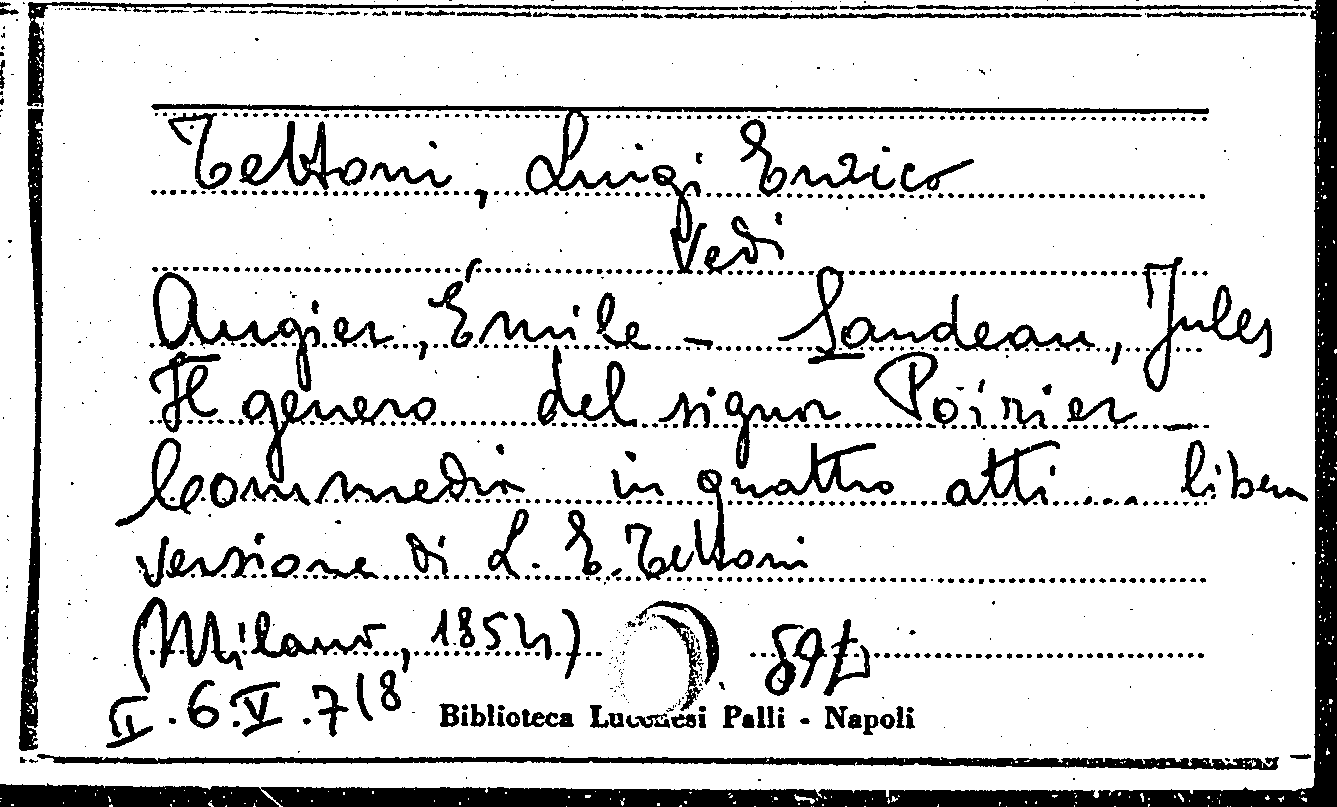 Tettoni, Luigi Enrico
Vedi
Augier, Émile - Sandeau, Jules
Il genero del signor Poirier -
Commedia in quattro atti... libera
versione di L. E. Tettoni
(Milano, 1854)
II.6.V.7(8
Biblioteca Lucchesi Palli - Napoli